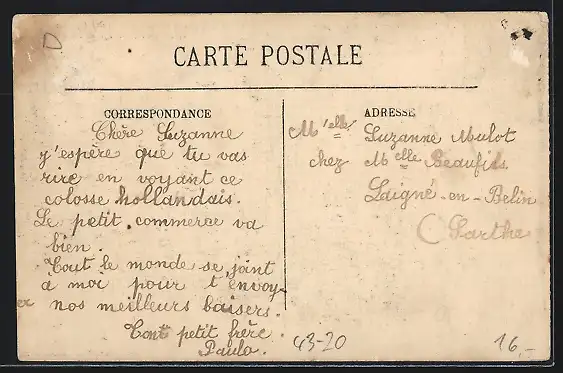 D
CARTE POSTALE
CORRESPONDANCE
Chère Suzanne
j'espère que tu vas
rire en voyant ce
colosse hollandais.
Le petit commerce va
bien.
Tout le monde se joint
a moi pour t'envoy-
er nos meilleurs baisers.
Tont petit frère.
Paulo.
ADRESSE
M'elle Suzanne Mulot
chez Melle Beaufils
Laigné-en-Belin
(Sarthe
43-20
16.-